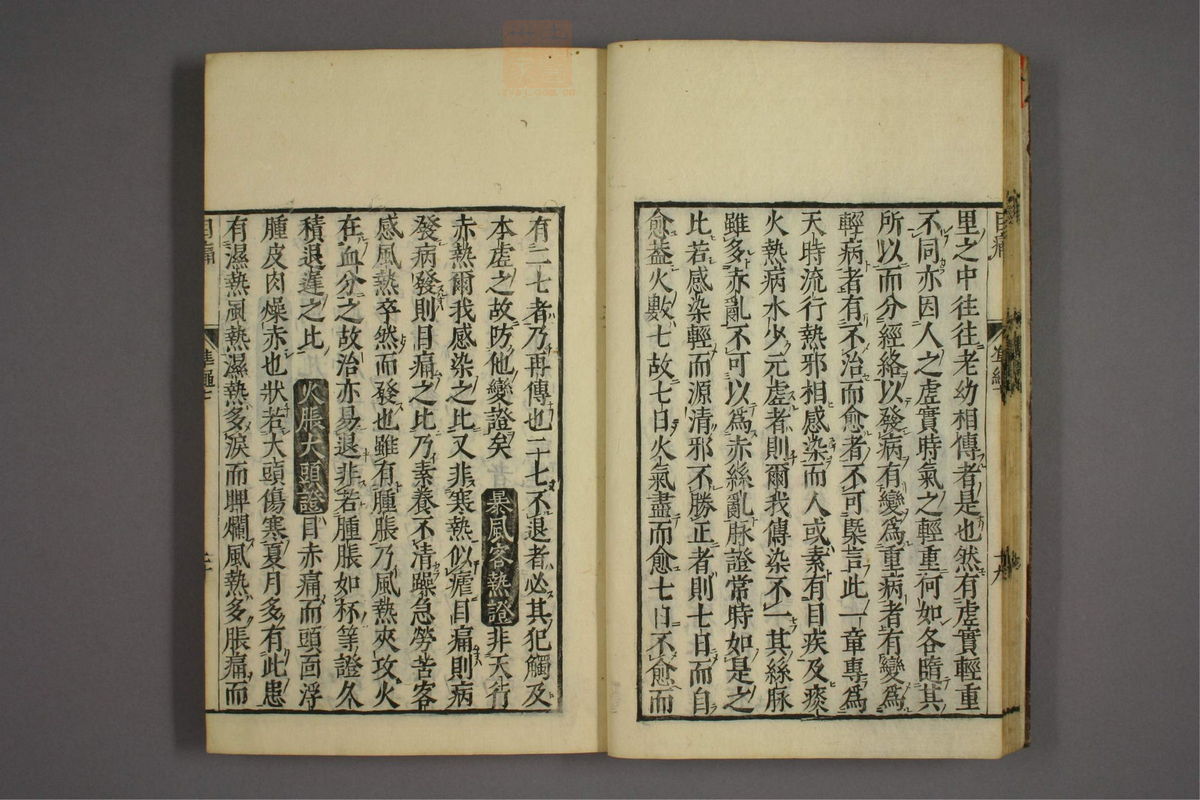 里之中往往老幼相傳者是也然有虛實輕重
不同亦因人之虛實時氣之輕重何如各隨其
所以而分經絡以發病有變爲重病者有變爲
輕病者有不治而愈者不可槩言此一章專爲
天時流行熱邪相感染而人或素有目疾及痰
火熱病水少元虛者則爾我傳染不一其絲脉
雖多亦亂不可以爲赤絲亂脉證常時如是之
比若感染輕而源清邪不勝正者則七日而自
愈葢火數七故七日火氣盡而愈七日不愈而
有二七者乃再傳也二十七不退者必其犯觸及
本虛之故防他變證矣 暴風客熱證 非天行
赤熱爾我感染之比又非寒熱似瘧目痛則病
發病發則目痛之比乃素養不清躁急勞苦客
感風熱卒然而發也雖有腫脹乃風熱夾攻火
在血分之故治亦易退非若腫脹如杯等證久
積退遲之比 火脹大頭證 目赤痛而頭面浮
腫皮肉燥赤也狀若大頭傷寒夏月多有此患
有濕熱風熱濕熱多淚而睥爛風熱多脹痛而
目痛
準繩七